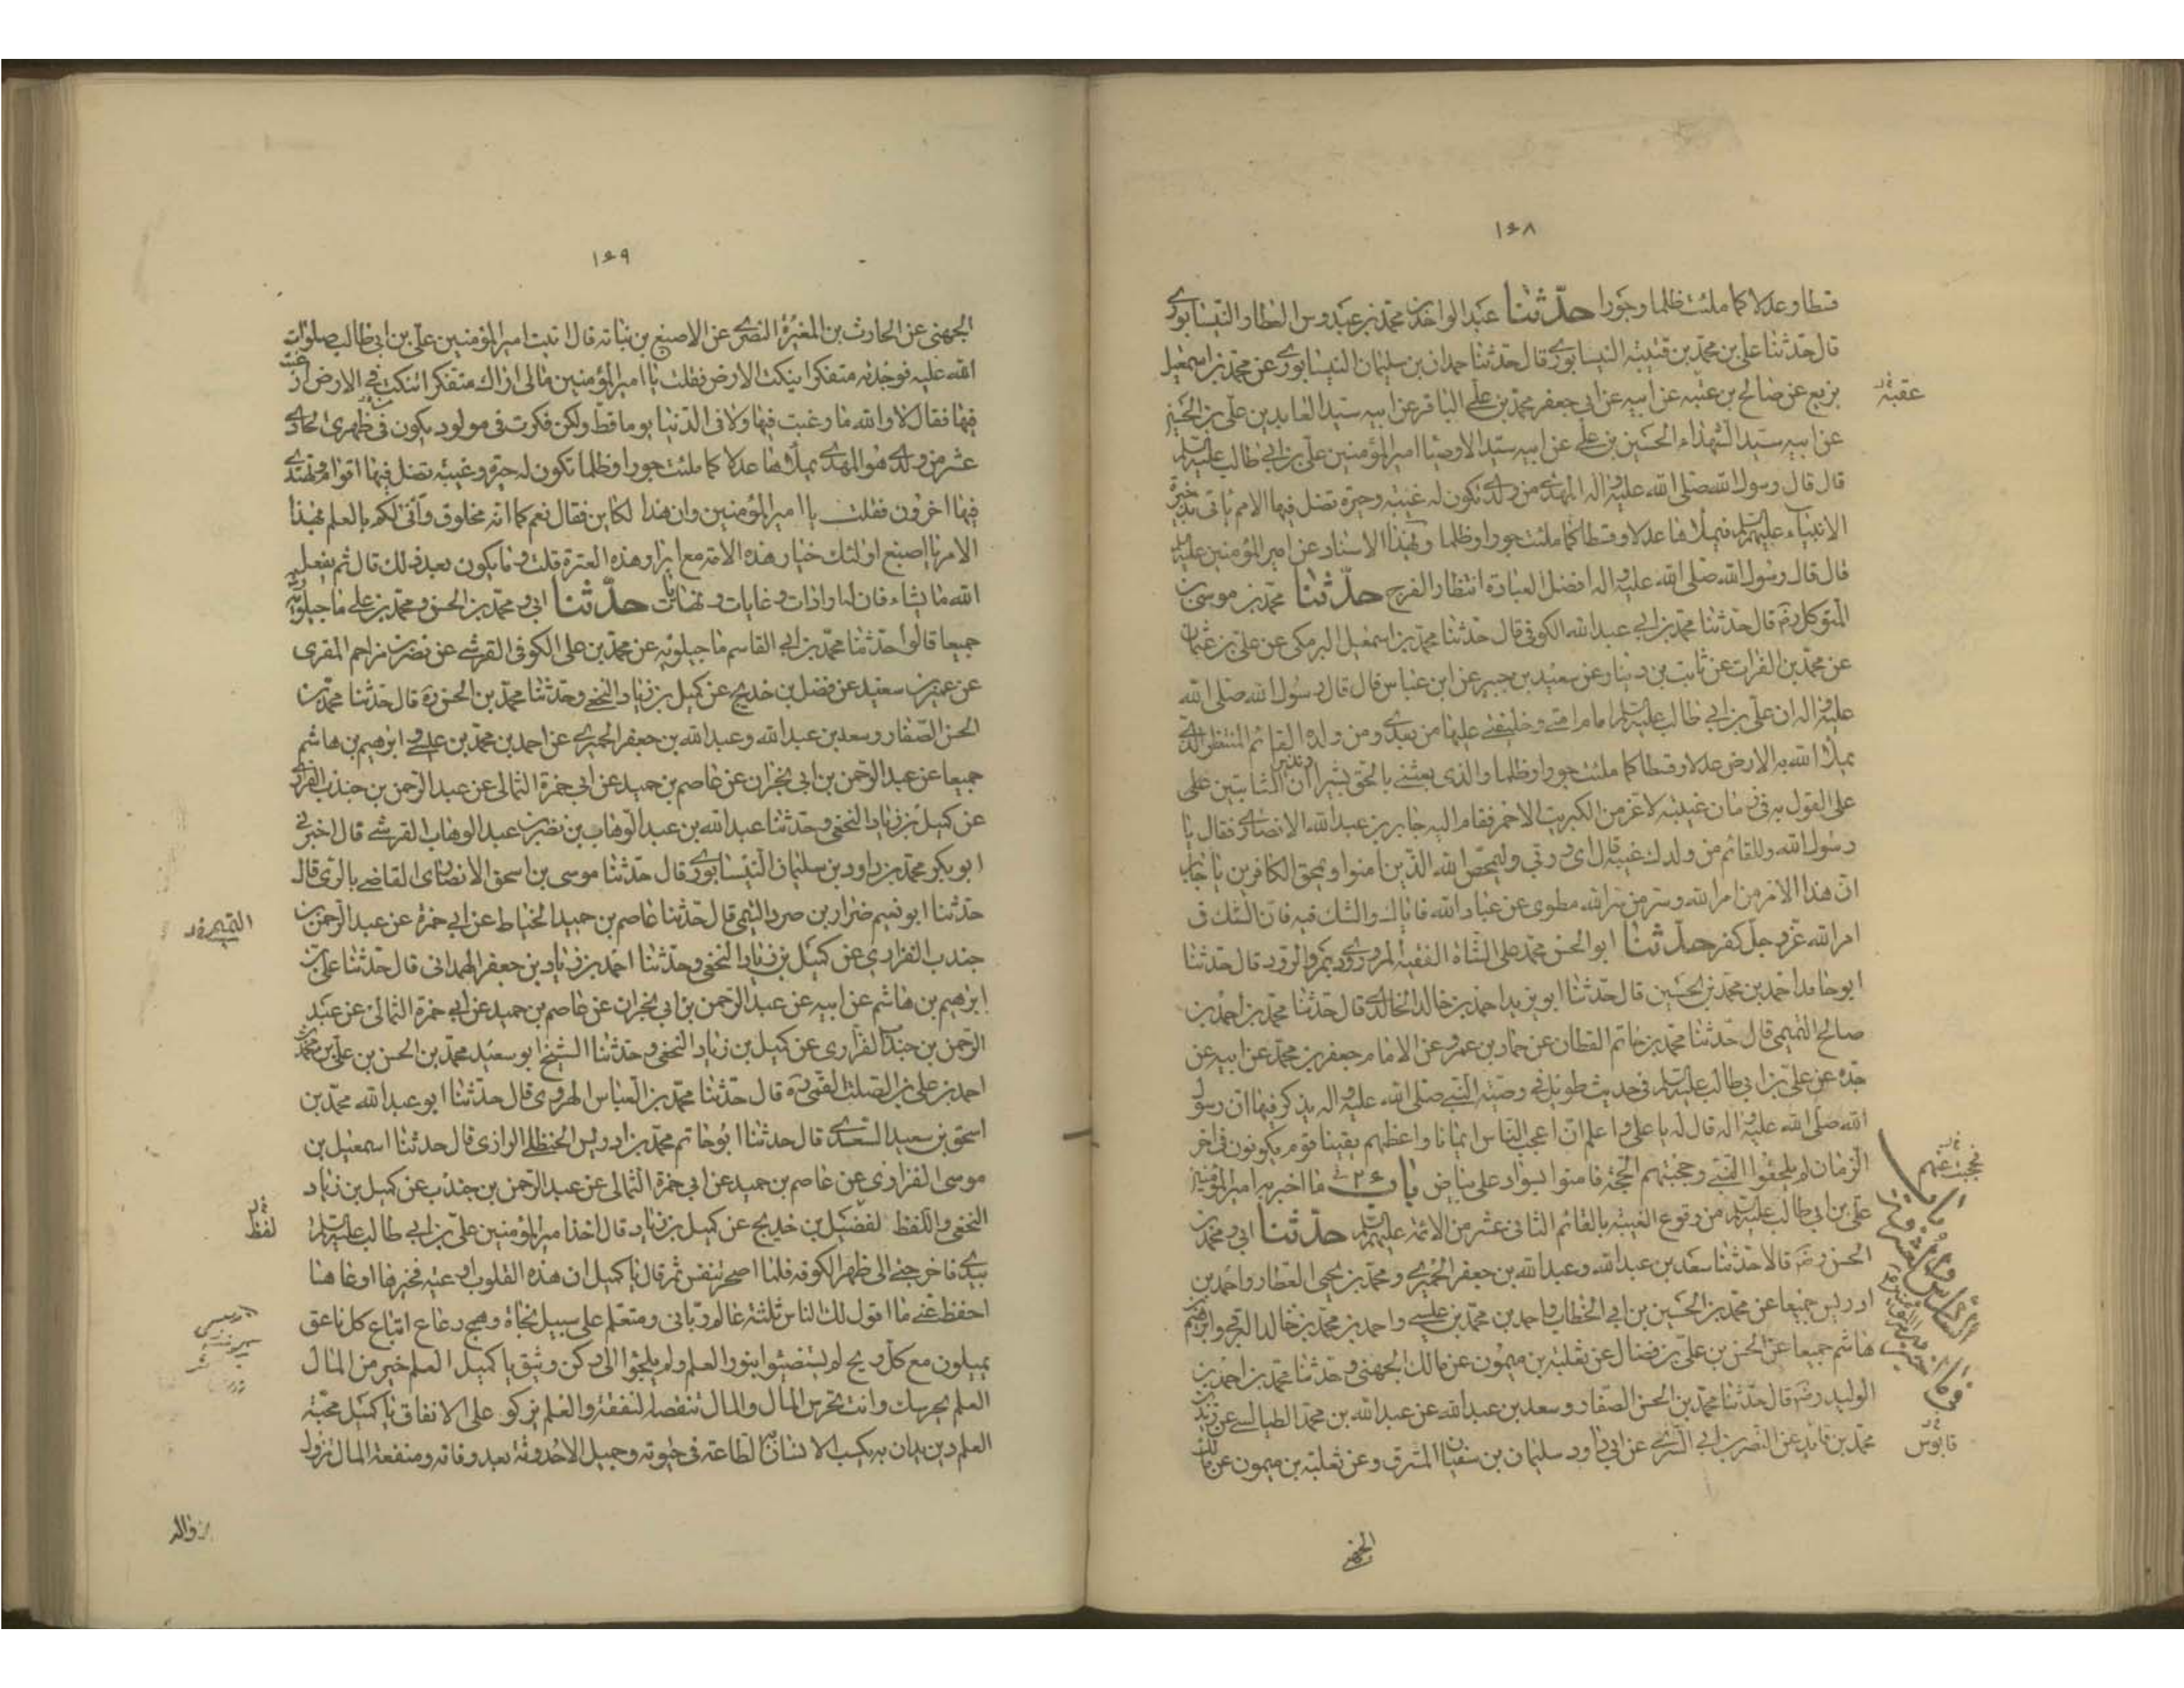 ١٤٨
قسطا وعدلا كما ملئت ظلما وجورا حدثنا عبد الواحد بن محمد بن عبدوس العطار النيسابوري
قال حدثنا علي بن محمد بن قتيبه النيسابوري قال حدثنا حمدان بن سليمان النيسابوري عن محمد بن اسمعيل
بزيع عن صالح بن عتبه عن ابيه عن ابي جعفر محمد بن علي الباقر عن ابيه سيد العابدين علي بن الحسين
عقبة
عن ابيه سيد الشهداء الحسين بن علي عن ابيه سيد الاوصيا امير المؤمنين علي بن ابي طالب عليه السلم
قال قال رسول الله صلى الله عليه واله المهدي من ولدي تكون له غيبه وحيرة تضل فيها الامم ياتي بذخيرة
الانبياء عليهم السلم فيملأها عدلا وقسطا كما ملئت جورا وظلما وبهذا الاسناد عن امير المؤمنين عليه السلم
قال قال رسول الله صلى الله عليه واله افضل العبادة انتظار الفرج حدثنا محمد بن موسى بن
المتوكل رضه قال حدثنا محمد بن ابي عبد الله الكوفي قال حدثنا محمد بن اسمعيل البرمكي عن علي بن عثمان
عن محمد بن الفرات عن ثابت بن دينار عن سعيد بن جبير عن ابن عباس قال قال رسول الله صلى الله
عليه واله ان علي بن ابي طالب عليه السلم امام امتي وخليفتي عليها من بعدي ومن ولده القائم المنتظر الذي
يملأ الله به الارض عدلا وقسطا كما ملئت جورا وظلما والذي بعثني بالحق بشيرا ونذيرا ان الثابتين على
على القول به في زمان غيبته لاعز من الكبريت الاحمر فقام اليه جابر بن عبد الله الانصاري فقال يا
رسول الله وللقائم من ولدك غيبة قال اي وربي وليمحص الله الذين امنوا ويمحق الكافرين يا جابر
ان هذا الامر من امر الله وسر من سر الله مطوي عن عباد الله فاياك والشك فيه فان الشك في
امر الله عز وجل كفر حدثنا ابو الحسن محمد علي الشاة الفقيه المروروذي بمرو الرود قال حدثنا
ابو حامد احمد بن محمد بن الحسين قال حدثنا ابو يزيد احمد بن خالد الخالدي قال حدثنا محمد بن احمد بن
صالح التميمي قال حدثنا محمد بن حاتم القطان عن حماد بن عمرو عن الامام جعفر بن محمد عن ابيه عن
جده عن علي بن ابي طالب عليه السلم في حديث طويل في وصية النبي صلى الله عليه واله يذكر فيها ان رسول
الله صلى الله عليه واله قال له يا علي واعلم ان اعجب الناس ايمانا واعظمهم يقينا قوم يكونون في اخر
الزمان لم يلحقوا النبي وحجبتهم الحجة فامنوا بسواد على بياض باب ٢٦ ما اخبر به امير المؤمنين
علي بن ابي طالب عليه السلم من وقوع الغيبة بالقائم الثاني عشر من الائمة عليهم السلم حدثنا ابي ومحمد بن
الحسن رضه قالا حدثنا سعد بن عبد الله وعبد الله بن جعفر الحميري ومحمد بن يحيى العطار واحمد بن
ادريس جميعا عن محمد بن الحسين بن ابي الخطاب واحمد بن محمد بن عيسى واحمد بن محمد بن خالد البرقي وابرهيم بن
هاشم جميعا عن الحسن بن علي بن فضال عن ثعلبة بن ميمون عن مالك الجهني وحدثنا محمد بن احمد بن
الوليد رضه قال حدثنا محمد بن الحسن الصفار وسعد بن عبد الله عن عبد الله بن محمد الطيالسي عن زيد بن
محمد بن قابد عن النضر بن ابي السري عن ابي داود سليمان بن سفيان المسترق وعن ثعلبة بن ميمون عن مالك
قابوس
الجهني
١٤٩
الجهني عن الحارث بن المغيرة النصري عن الاصبغ بن نباته قال اتيت امير المؤمنين علي بن ابي طالب صلوات
الله عليه فوجدته متفكرا ينكت الارض فقلت يا امير المؤمنين مالي اراك متفكرا تنكت في الارض ارغبت
فيها فقال لا والله ما رغبت فيها ولا في الدنيا يوما قط ولكن فكرت في مولود يكون في ظهري الحادي
عشر من ولدي هو المهدي يملأها عدلا كما ملئت جورا وظلما تكون له حيرة وغيبة تضل فيها اقوام ويهتدي
فيها اخرون فقلت يا امير المؤمنين وان هذا لكاين فقال نعم كما انه مخلوق وانى لكم بالعلم بهذا
الامر يا اصبغ اولئك خيار هذه الامة مع ابرار هذه العترة قلت وما يكون بعد ذلك قال ثم يفعل
الله ما يشاء فان له ارادات وغايات ونهايات حدثنا ابي ومحمد بن الحسن ومحمد بن علي ماجيلويه
جميعا قالوا حدثنا محمد بن ابي القاسم ماجيلويه عن محمد بن علي الكوفي القرشي عن نصر بن مزاحم المقري
عن عمر بن سعيد عن فضل بن خديج عن كميل بن زياد النخعي وحدثنا محمد بن الحسن ره قال حدثنا محمد بن
الحسن الصفار وسعد بن عبد الله وعبد الله بن جعفر الحميري عن احمد بن محمد بن عيسى وابرهيم بن هاشم
جميعا عن عبد الرحمن بن ابي نجران عن عاصم بن حميد عن ابي حمزة الثمالي عن عبد الرحمن بن جندب الفزاري
عن كميل بن زياد النخعي وحدثنا عبد الله بن عبد الوهاب بن نصر بن عبد الوهاب القرشي قال اخبرني
ابو بكر محمد بن داود بن سليمان النيسابوري قال حدثنا موسى بن اسحق الانصاري القاضي بالري قال
حدثنا ابو نعيم ضرار بن صرد التيمي قال حدثنا عاصم بن حميد الخياط عن ابي حمزة عن عبد الرحمن بن
جندب الفزاري عن كميل بن زياد النخعي وحدثنا احمد بن زياد بن جعفر الهمداني قال حدثنا علي بن
ابرهيم بن هاشم عن ابيه عن عبد الرحمن بن ابي نجران عن عاصم بن حميد عن ابي حمزة الثمالي عن عبد
الرحمن بن جندب الفزاري عن كميل بن زياد النخعي وحدثنا الشيخ ابو سعيد محمد بن الحسن بن علي بن محمد بن
احمد بن علي بن الصلت القمي ره قال حدثنا محمد بن العباس الهروي قال حدثنا ابو عبد الله محمد بن
اسحق بن سعيد السعدي قال حدثنا ابو حاتم محمد بن ادريس الحنظلي الرازي قال حدثنا اسمعيل بن
موسى الفزاري عن عاصم بن حميد عن ابي حمزة الثمالي عن عبد الرحمن بن جندب عن كميل بن زياد
النخعي واللفظ لفضيل بن خديج عن كميل بن زياد قال اخذ امير المؤمنين علي بن ابي طالب عليه السلم
لفظ
بيدي فاخرجني الى ظهر الكوفه فلما اصحر تنفس ثم قال يا كميل ان هذه القلوب اوعيه فخيرها اوعاها
احفظ عني ما اقول لك الناس ثلثة عالم رباني ومتعلم على سبيل نجاة وهمج رعاع اتباع كل ناعق
يميلون مع كل ريح لم يستضيئوا بنور العلم ولم يلجؤا الى ركن وثيق يا كميل العلم خير من المال
العلم يحرسك وانت تحرس المال والمال تنقصه النفقة والعلم يزكو على الانفاق يا كميل محبة
العلم دين يدان به يكسب الانسان الطاعة في حيوته وجميل الاحدوثة بعد وفاته ومنفعة المال تزول
بزواله